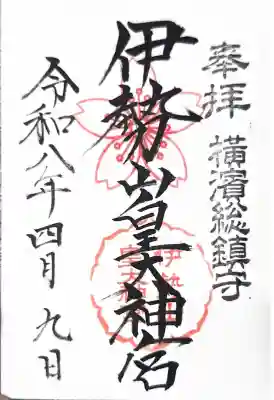 奉拝 横濱総鎮守
伊勢山皇大神宮
令和八年四月九日